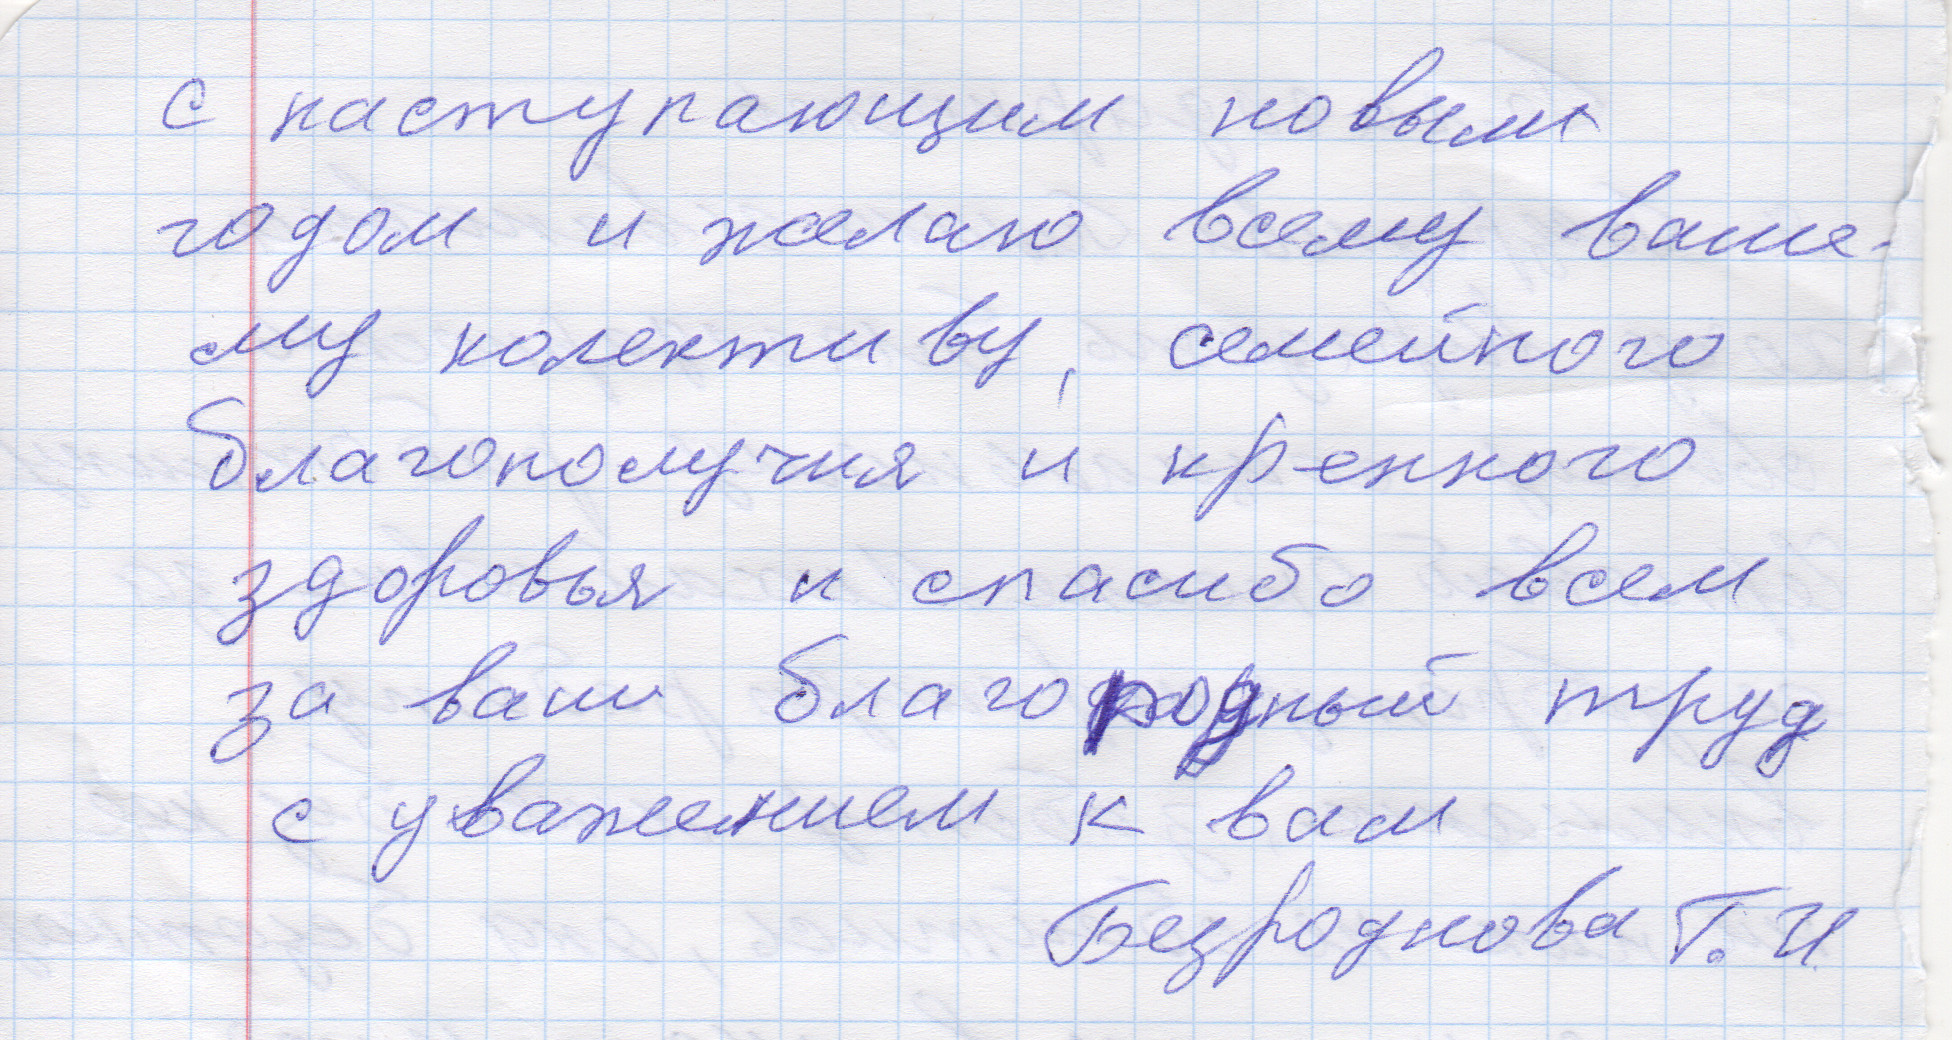 с наступающим новым
годом и желаю всему ваше-
му колективу, семейного
благополучия и крепкого
здоровья и спасибо всем
за ваш благородный труд
с уважением к вам
Безроднова Т. И